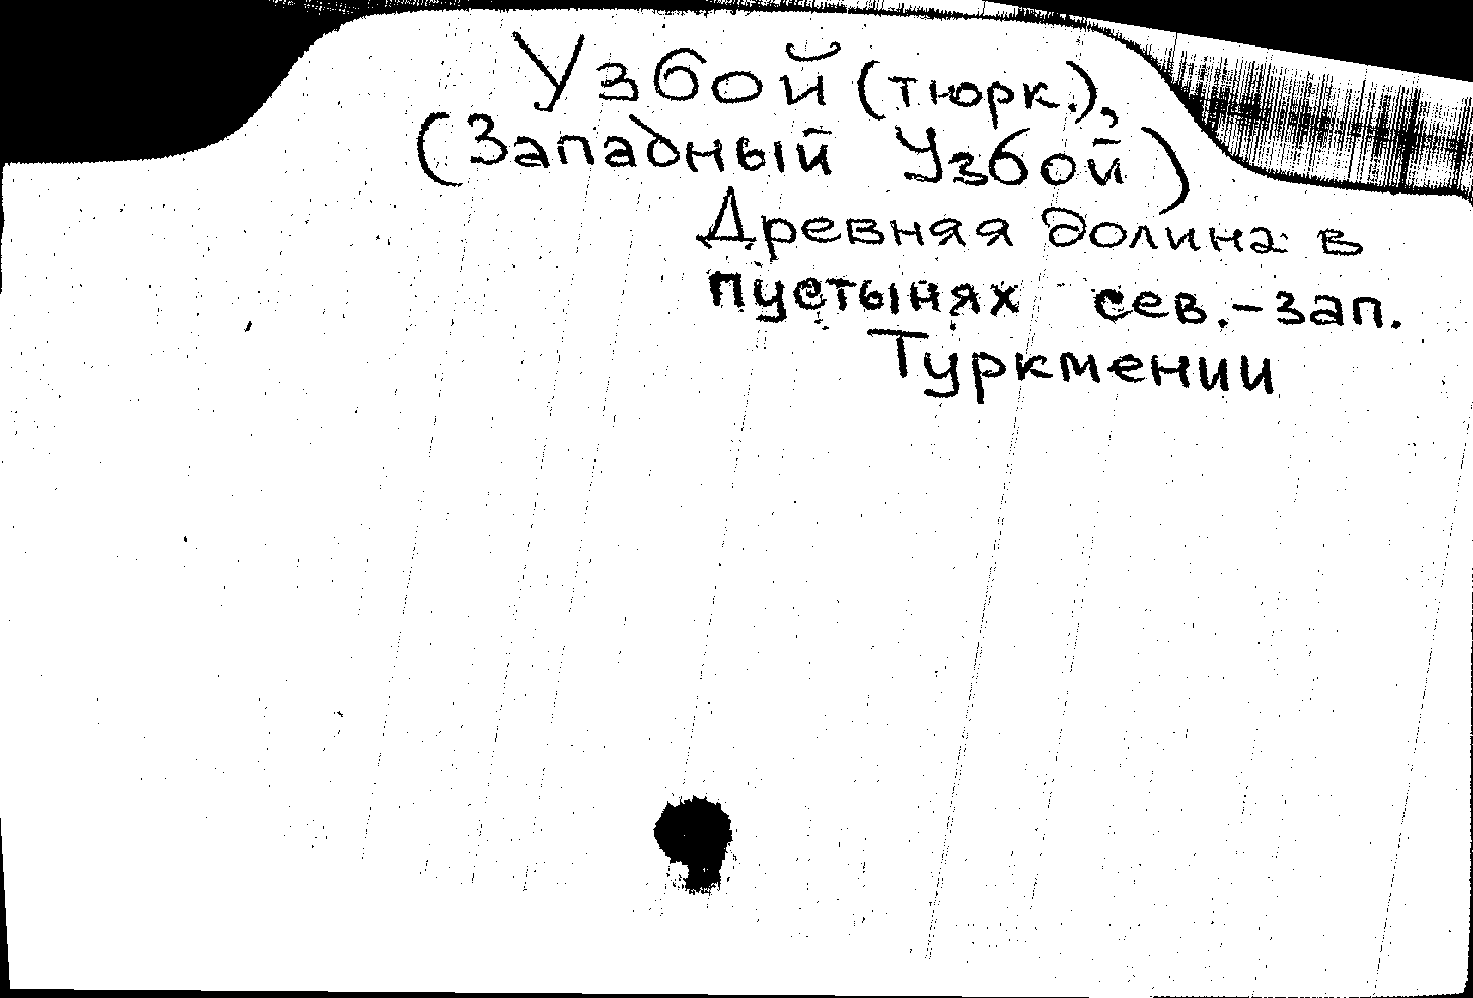 Узбой (тюрк.),
(Западный Узбой)
Древняя долина в
пустынях сев.-зап.
Туркмении